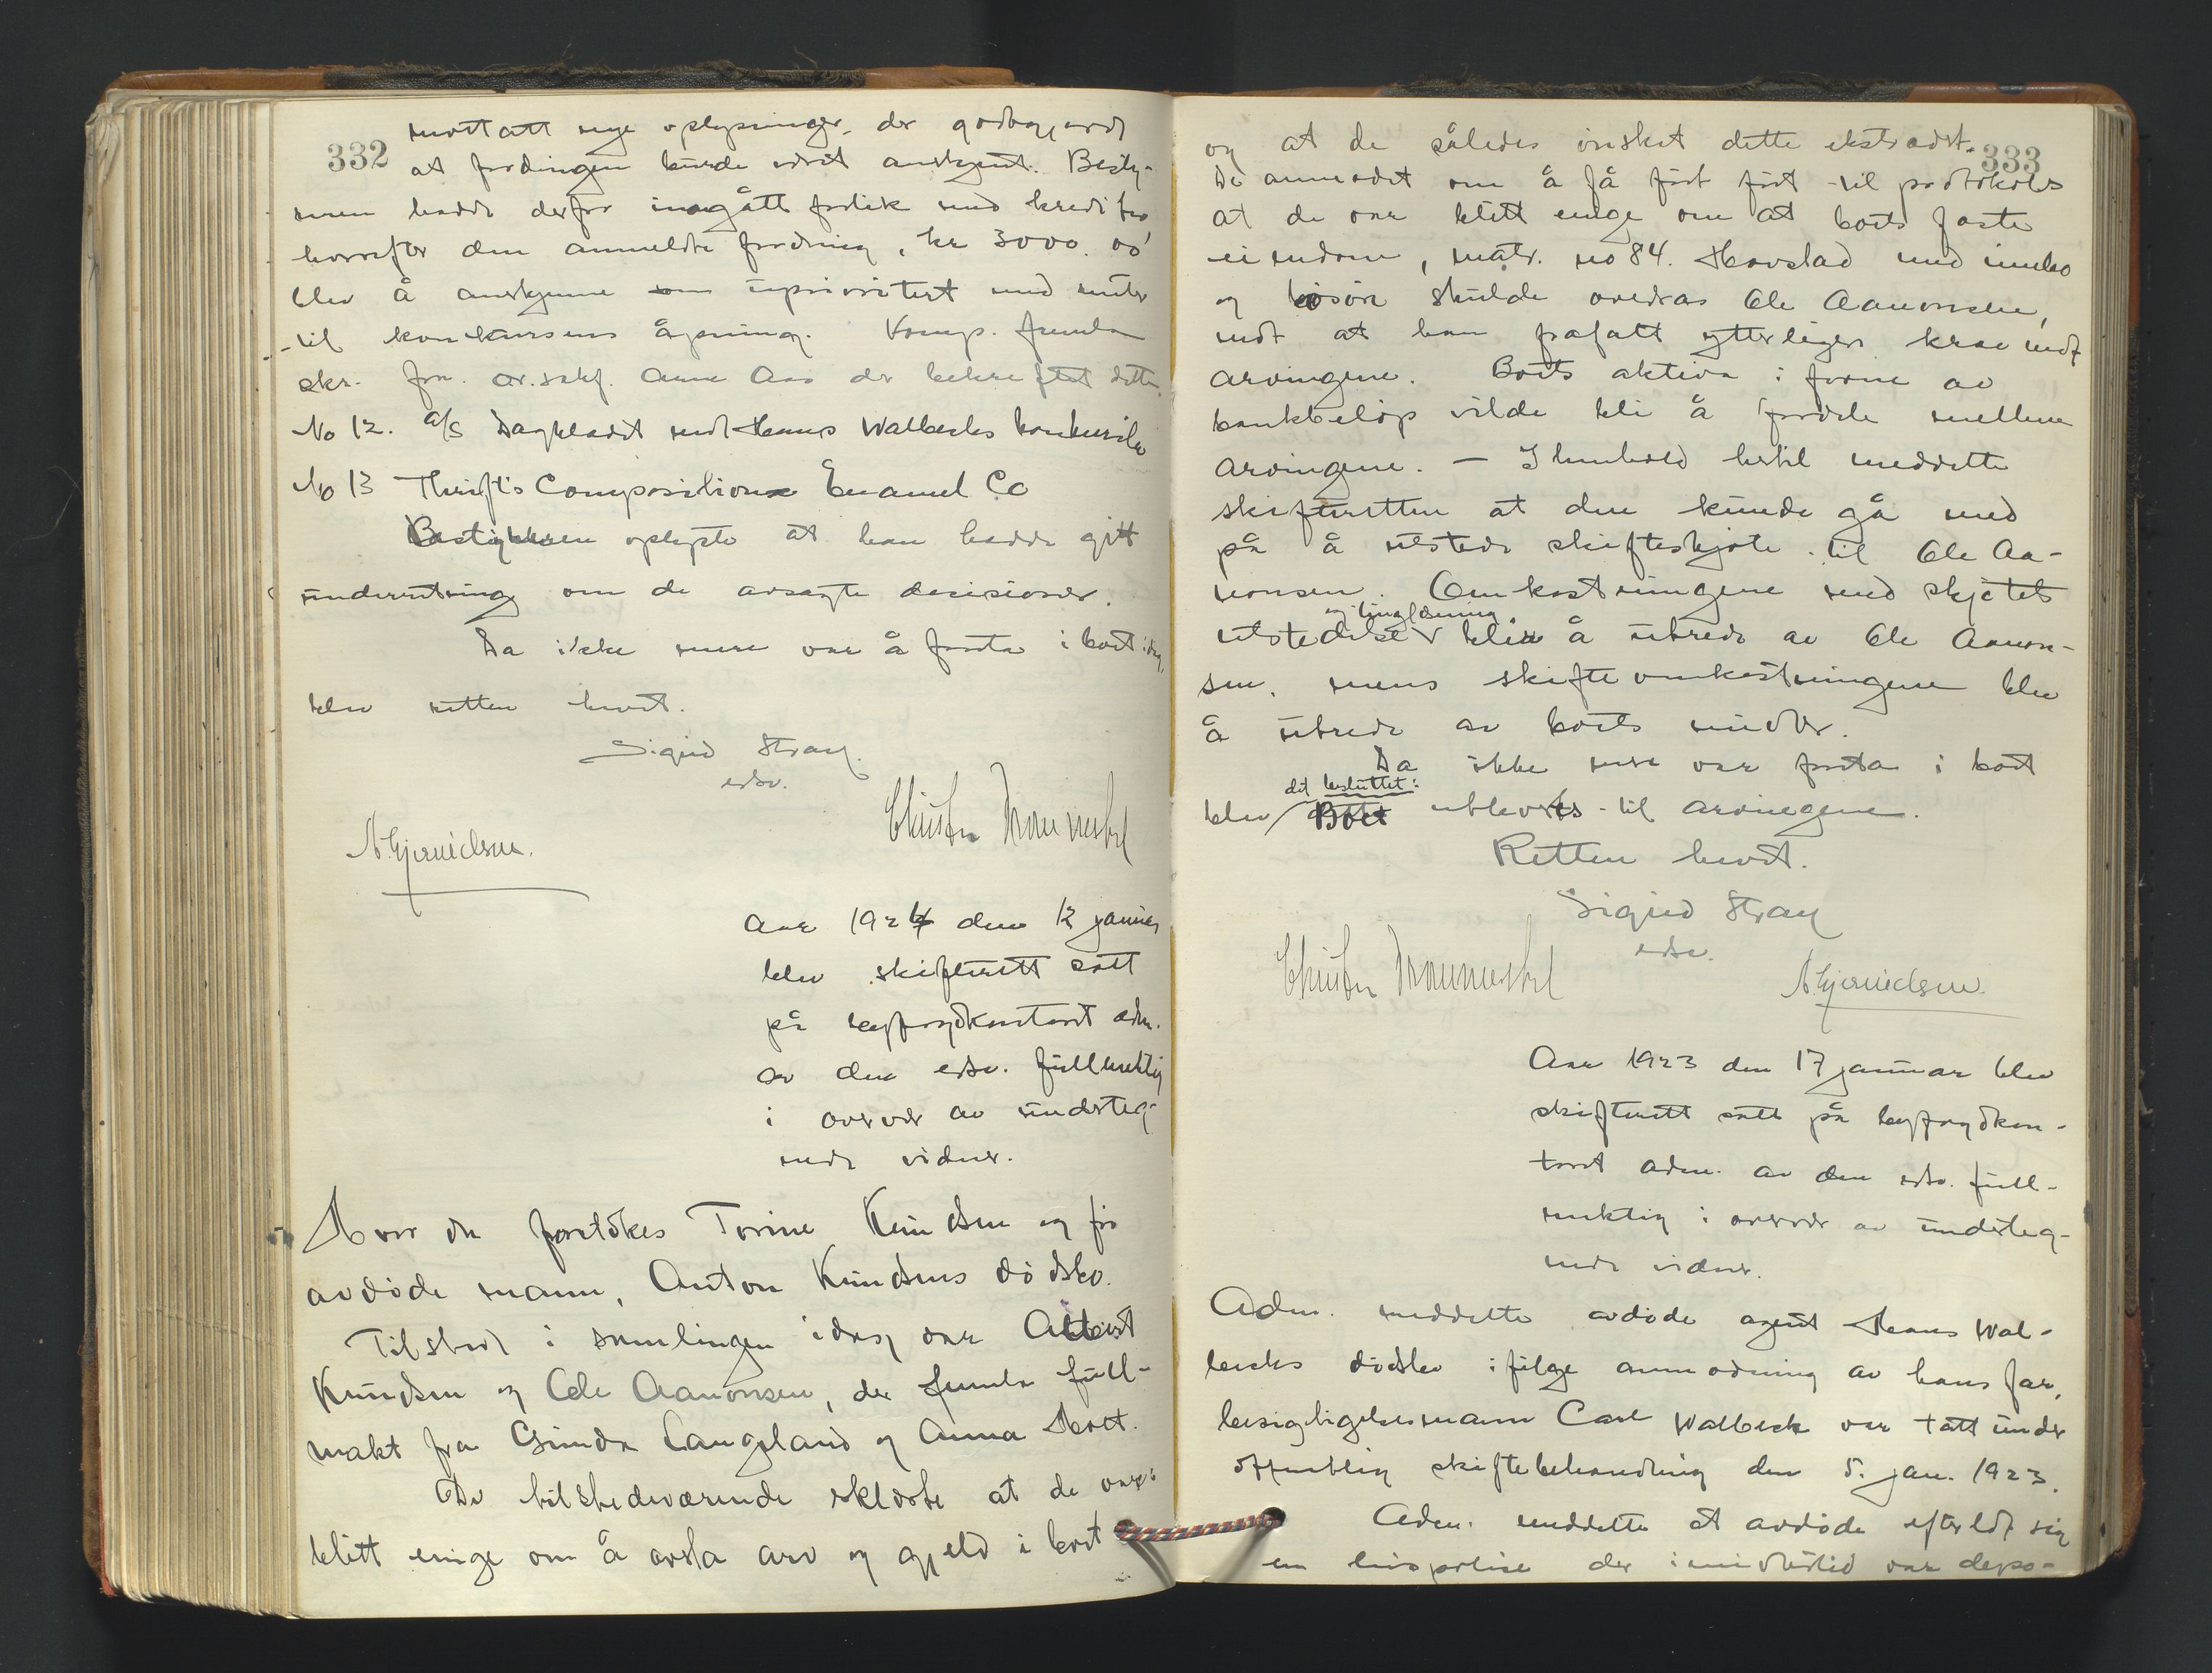 332
mottatt nye oplysninger, der godtgjorde
at fordingen burde være anerkjent. Besty-
reren hadde derfor inngått forlik med kreditor
hvorefter den anmeldte fordring, kr 3000.00
blev å anerkjenne som uprioritert med renter
til konkursens åpning. Komp. fremla
skr. fra o.r.sakf. Arne Aas der bekreftet dette.
No 12. A/S Dagbladet mot Hans Walbecks konkursbo
No 13 Thrift's Composition Enamel Co
Bestyreren oplyste at han hadde gitt
underretning om de avsagte decisioner.
Da ikke mere var å foreta i boet idag,
blev retten hevet.
Sigrid Stray
edsv.
A. Gjeruldsen.
Aar 1924 den 12 januar
blev skifterett satt
på byfogdkontoret adm.
av den edsv. fullmektig
i overvær av underteg-
nede vidner.
Hvor da foretokes Torine Knudsen og før
avdøde mann, Anton Knudsens dødsbo.
Tilstede i samlingen idag var Albert
Knudsen og Ole Aanonsen, der fremla full-
makt fra Gunda Langeland og Anna
De tilstedeværende erklærte at de var
blitt enige om å avsta arv og gjeld i boet
333
og at de således ønsket dette ekstradert.
De anmodet om å få ført ført til protokolls
at de var blitt enige om at boets faste
eiendom, matr. no 84. Havstad med innbo
og løsøre skulde overdras Ole Aanonsen,
mot at han frafalt ytterligere krav mot
arvingene. Boets aktiva i form av
bankbeløp vilde bli å fordele mellem
arvingene. – I henhold hertil meddelte
skifteretten at den kunde gå med
på å utstede skifteskjøte til Ole Aa-
nonsen. Omkostningene med skjøtets
utstedelse og tinglesning blir å utrede av Ole Aanon-
sen, mens skifteomkostningene blev
å utrede av boets midler.
Da ikke mere var foreta i boet
blev det besluttet: Boet utleveres til arvingene.
Retten hevet.
Sigrid Stray
edsv.
A. Gjeruldsen.
Aar 1923 den 17 januar blev
skifterett satt på byfogdkon-
toret adm. av den edsv. full-
mektig i overvær av underteg-
nede vidner.
Adm. meddelte avdøde agent Hans Wal-
becks dødsbo ifølge anmodning av hans far,
besigtigelsesmann Carl Walbeck var tatt under
offentlig skiftebehandling den 5. jan. 1923.
Adm. meddelte at avdøde efterlot sig
en livspolise der imidlertid var depo-